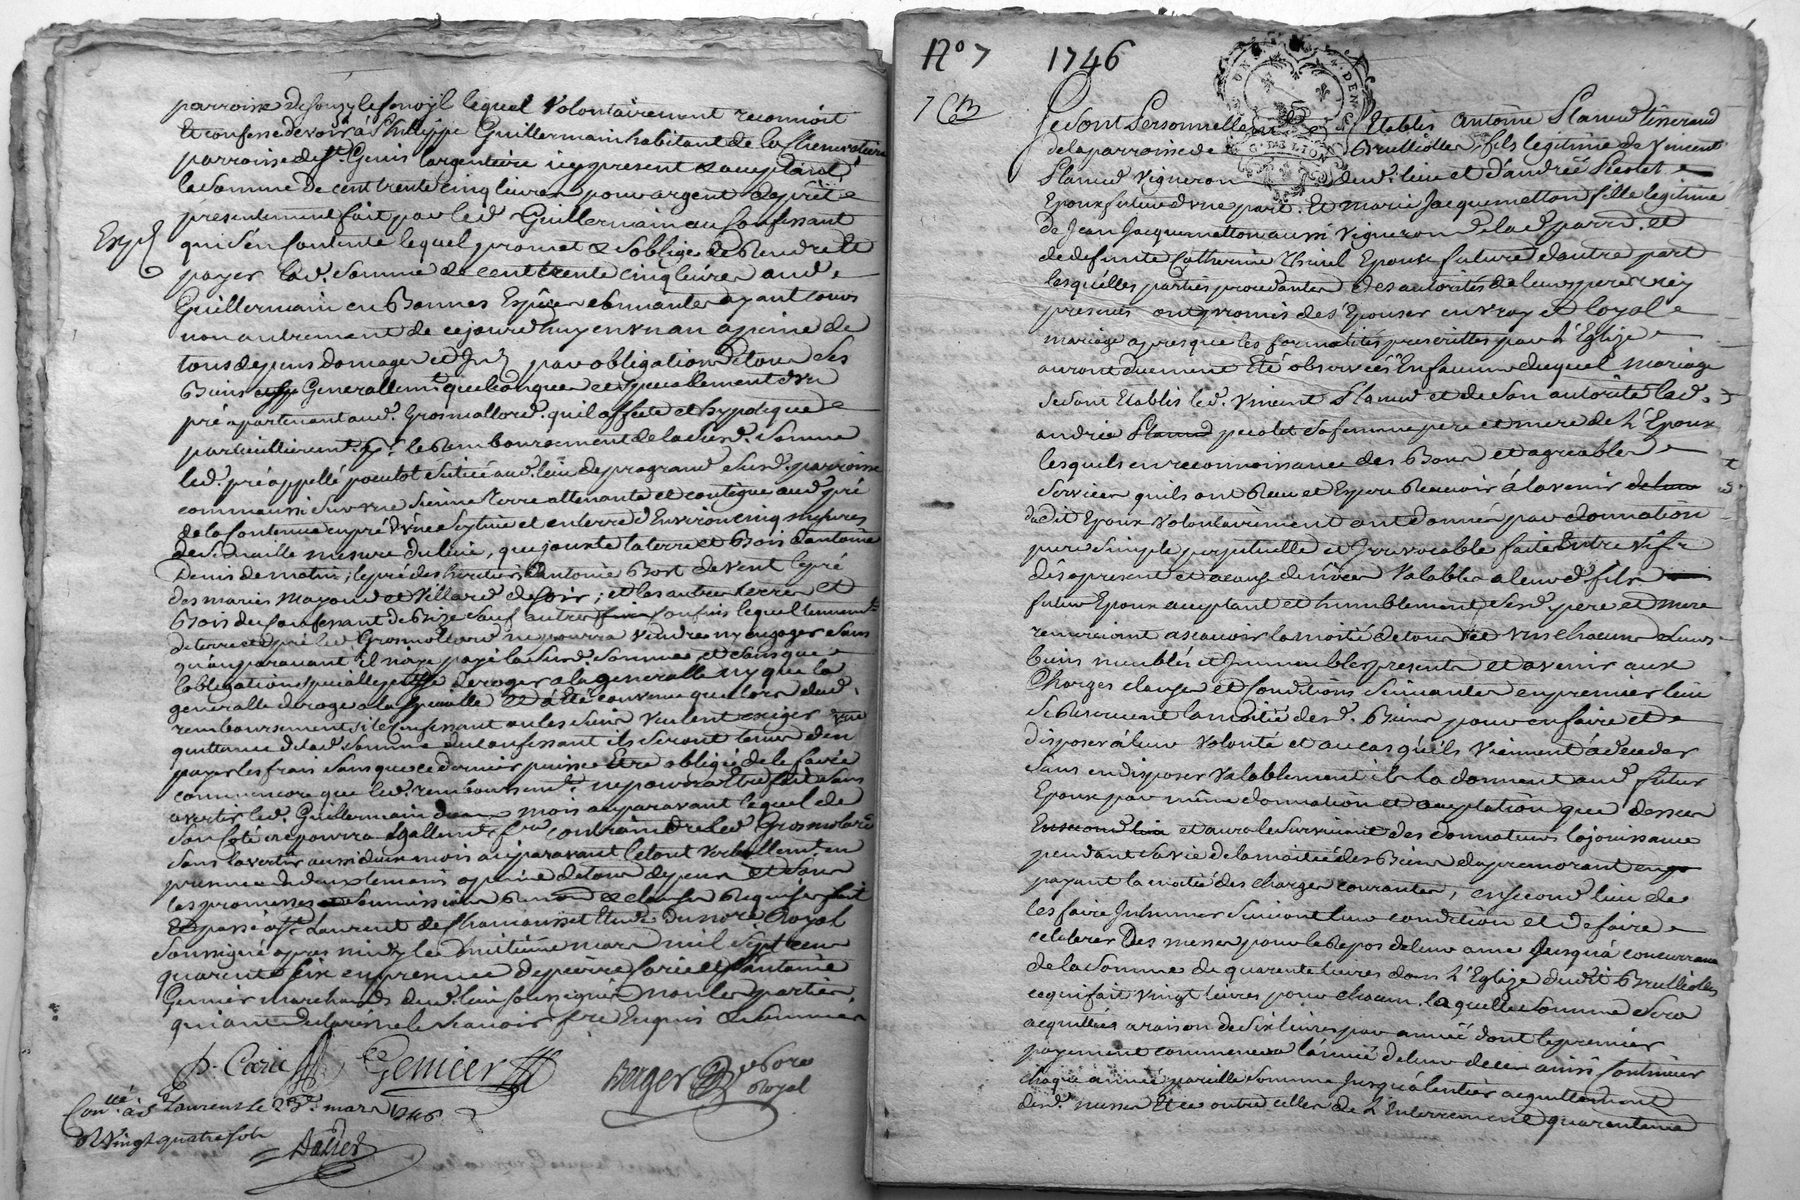 parroisse de Souzy lesquel volontairement reconnoit
Et confesse devoir à Philippe Guillermain habitant de la
parroisse de St. Genis largentiere icy present & acceptant
la Somme de cent trente cinq livres pour argent de prêt
presentement fait par led. Guillermain au Confessant
qui s'en Contente lequel promet & s'oblige de Rendre Et
Exp.
payer lad. Somme de cent trente cinq livres aud.
Guillermain en Bonnes Espèces sonnantes ayant cours
non autrement de cejourd'huy en un an a peine de
tous depens domages et par obligation de tous ses
Biens Generallemt. quelconques et specialement d'un
pré apartenant aud. Grosmollard. qu'il affecte et hypoteque
particulierement pr. le Remboursement de la susd. Somme
led. pré appellé situé aud. lieu de susd. parroisse
comm'aussi Sur une Sienne Terre attenante et contigue aud. pré
de la Contenue en pré d'une et en terre d'Environ cinq mesures
de Semaille mesure du lieu, que jouxte la terre et Bois d'antoine
Denis de matin; le pré des heritiers d'antoine Bost de vent le pré
des maries et Villard de Soir; et les autres terres et
Bois du Confessant de Bize Sauf autres Confins lequel
de terre et pré led. Grosmollard ne pourra Vendre ny engager Sans
qu'auparavant il n'aye payé la susd. Somme, et Sans que
l'obligation specialle Deroge a la generalle ny que la
generalle deroge a la specialle Et a été convenu que lors dud.
remboursement, si le Confessant ou les Siens veulent exiger une
quittance de lad. Somme du Confessant ils Seront tenus d'en
payer les frais Sans que ce dernier puisse Etre obligé de le faire
comm'encore que led. remboursemt. ne pourra Etre fait Sans
avertir led. Guillermain deux mois auparavant lequel de
Son Coté ne pourra Egallemt. contraindre led. Grosmolard
Sans l'avertir aussi deux mois auparavant le tout verballement en
presence de deux temoins a peine de tous depens Et Sous
les promesses Soumissions Renon. & clauses Requises fait
Et passé a St. Laurent de Chamousset Etude du no.re Royal
Soussigné apres midy le huitième mars mil Sept cent
quarente Six en presence de pierre Corie et d'antoine
Genier marchands dud. lieu Soussignés non les parties
qui ont declaré ne le Scavoir f.re Enquis & Sommés
p. Corie Genier Berger no.re Royal
Con.llé à St Laurent le 23e. mars 1746.
R. Vingt quatre sols
Dalier
N° 7 1746
G. DE LION
Se Sont Personnellem. Etablis antoine tisserand
de la parroisse de Brulliolles, fils legitime de Vincent
Vigneron dud. lieu et d'andrée Picolet
Epoux futur d'une part. Et marie Jacquemetton fille legitime
de Jean Jacquemetton aussi Vigneron de lad. parr. et
de defunte Catherine Epouse future d'autre part
lesquelles parties procedantes des autorités de leurs peres icy
presents ont promis de s'Epouser en vray et loyal
mariage apres que les formalités prescrittes par l'Eglize
auront duement Eté observées En faveur duquel mariage
Se Sont Etablis led. Vincent et de son autorité lad.
andrée picolet Sa femme pere et mere de l'Epoux
lesquels en reconnoissance des Bons et agreables
Services qu'ils ont Reçu et Espere Recevoir à l'avenir
dudit Epoux volontairement ont donnés par donnation
pure Simple perpetuelle et Irrevocable faite Entre vifs
dès apresent et a cause de nôces Valable a leurd. fils
futur Epoux acceptant et humblement Sesd. pere et mere
remerciant a scavoir la moitié de tous et uns chacuns leurs
biens meubles et Immeubles presents et avenir aux
Charges clauses et Conditions Suivantes en premier lieu
Se Reservent la moitié desd. Biens pour en faire et
disposer à leur volonté et au cas qu'ils Viennent à deceder
Sans en disposer Valablement ils la donnent aud. futur
Epoux par même donnation et acceptation que dessus
et aura le Survivant des donnateurs la jouissance
pendant Sa vie de la moitié des Biens du premourant en
payant la moitié des charges courantes, en Second lieu de
les faire Inhumer Suivant leur condition et de faire
celebrer Des messes pour le Repos de leur ame Jusqu'à concurrance
de la Somme de quarente livres dans l'Eglize dudit Brulliolles
ce qui fait vingt livres pour chacun. laquelle Somme Sera
acquittée a raison de Six livres par année dont le premier
payement commencera l'année de leur deces ainsi Continuer
chaque année pareille Somme Jusqu'à l'entier acquittement
desd. messes Et ce outre celles de l'Enterrement quarentaine